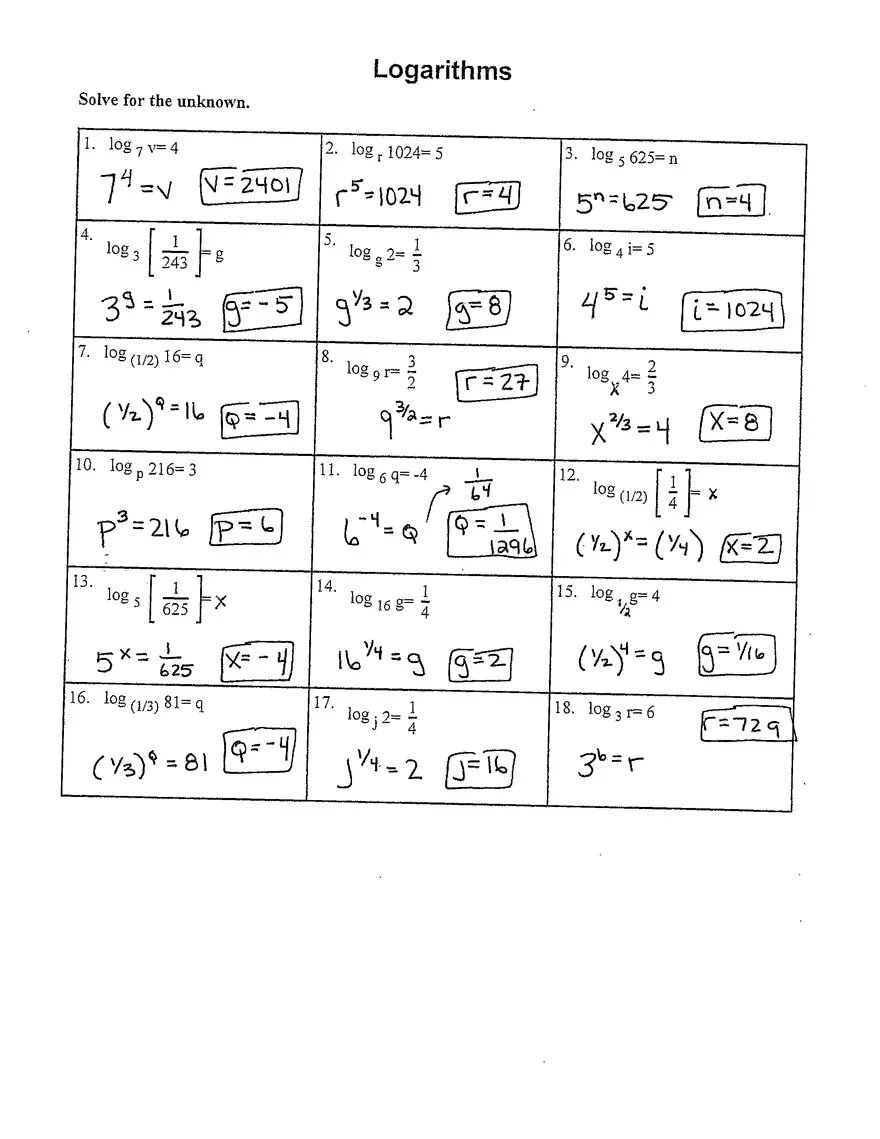 Logarithms
Solve for the unknown.
1. log 7 v= 4
7^4 = v  v = 2401
2. log r 1024= 5
r^5 = 1024  r = 4
3. log 5 625= n
5^n = 625  n = 4
4. log 3 [1/243] = g
3^g = 1/243  g = -5
5. log g 2= 1/3
g^1/3 = 2  g = 8
6. log 4 i= 5
4^5 = i  i = 1024
7. log (1/2) 16= q
(1/2)^q = 16  Q = -4
8. log 9 r= 3/2
r = 27
9^3/2 = r
9. log x 4= 2/3
x^2/3 = 4  X = 8
10. log p 216= 3
p^3 = 216  p = 6
11. log 6 q= -4
1/64
6^-4 = Q  Q = 1/1296
12. log (1/2) [1/4] = x
(1/2)^x = (1/4)  X = 2
13. log 5 [1/625] = x
5^x = 1/625  X = -4
14. log 16 g= 1/4
16^1/4 = g  g = 2
15. log 1/2 g= 4
(1/2)^4 = g  g = 1/16
16. log (1/3) 81= q
(1/3)^q = 81  Q = -4
17. log j 2= 1/4
j^1/4 = 2  J = 16
18. log 3 r= 6
r = 729
3^6 = r